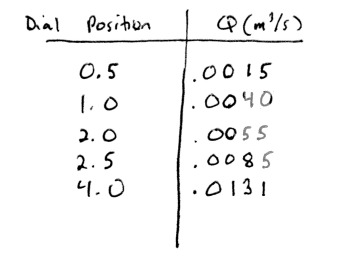 Dial Position Q (m³/s)
0.5 .0015
1.0 .0040
2.0 .0055
2.5 .0085
4.0 .0131